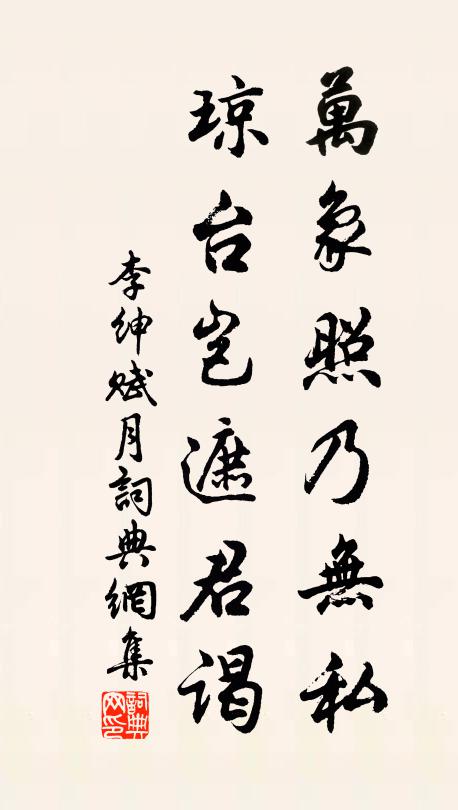 萬象照乃無私
琼台岂遮君谒
李紳赋月詞典網集
詞典网印